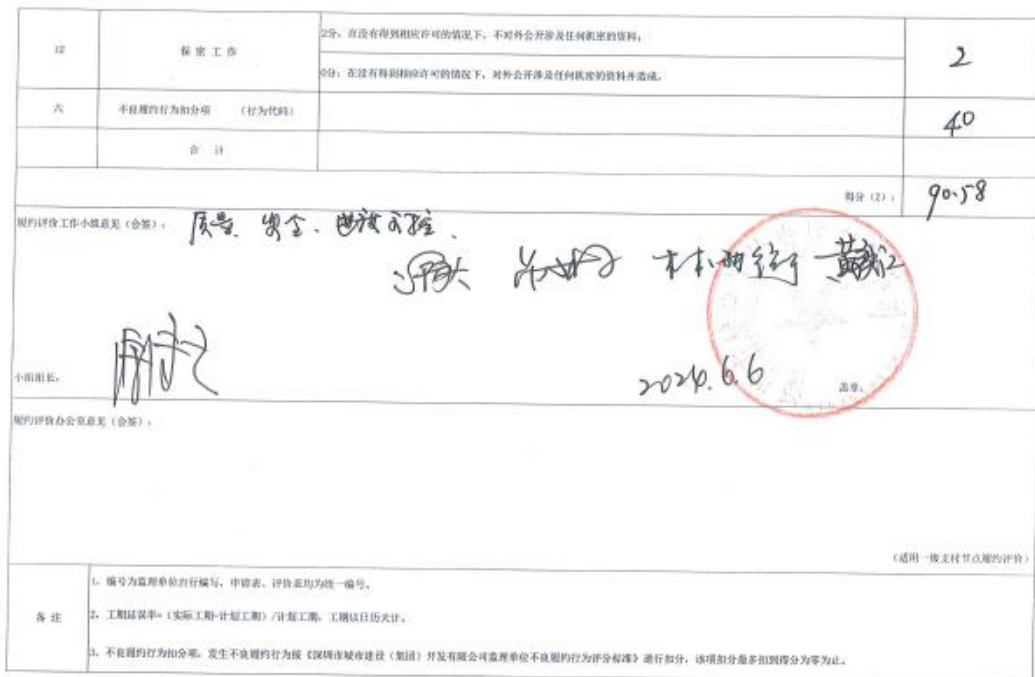 12 保密工作 2分：在没有得到相应许可的情况下，不对外公开涉及任何机密的资料； 2
0分：在没有得到相应许可的情况下，对外公开涉及任何机密的资料并造成。
六 不良履约行为扣分项 （行为代码） 40
合 计
得分（2）： 90.58
履约评价工作小组意见（会签）： 质量、安全、进度可控、
小组组长：
2024.6.6 盖章：
履约评价办公室意见（会签）：
（适用一般支付节点履约评价）
备 注
1、编号为监理单位自行编写，申请表、评价表均为统一编号。
2、工期延误率=（实际工期-计划工期）/计划工期，工期以日历天计。
3、不良履约行为扣分项：发生不良履约行为按《深圳市城市建设（集团）开发有限公司监理单位不良履约行为评分标准》进行扣分，该项扣分最多扣到得分为零为止。